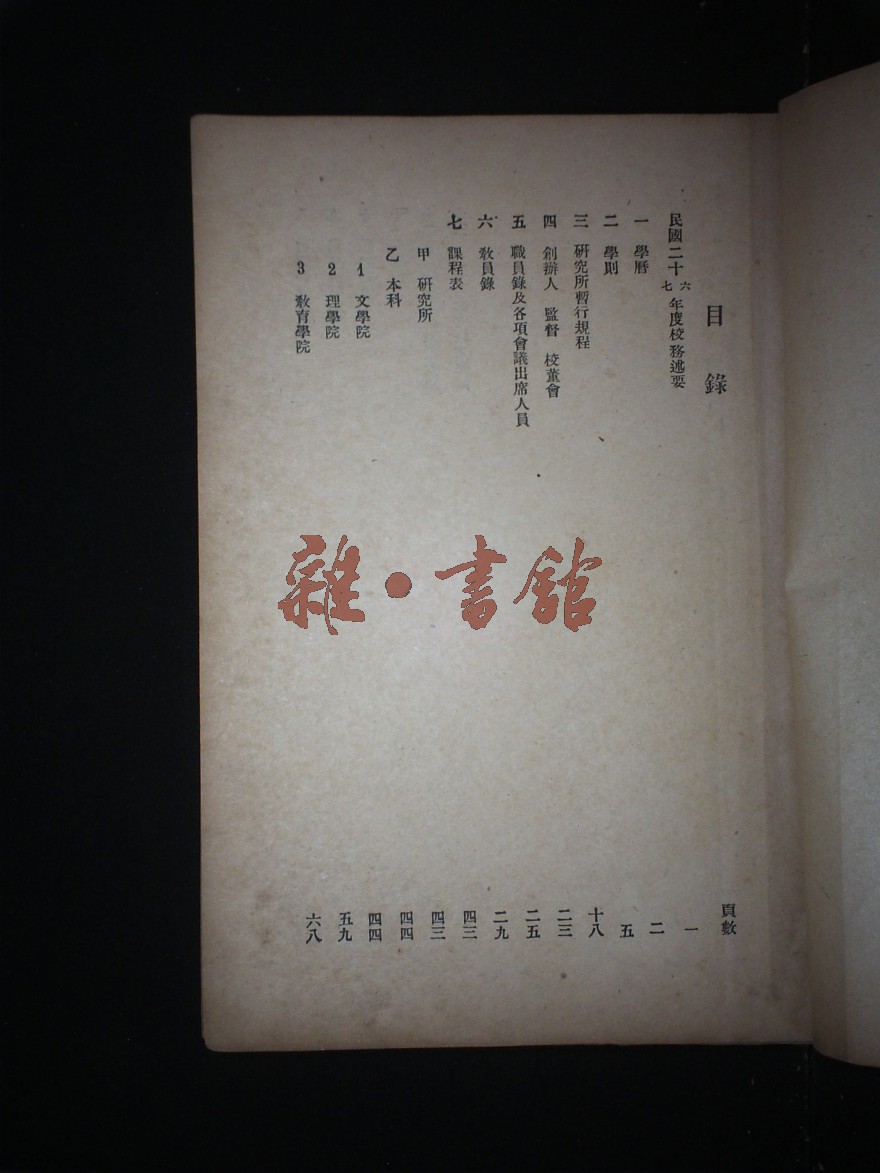 目錄
頁數
民國二十六七年度校務述要 一
一 學曆 二
二 學則 五
三 研究所暫行規程 十八
四 創辦人 監督 校董會 二三
五 職員錄及各項會議出席人員 二五
六 教員錄 二九
七 課程表 四三
甲 研究所 四三
乙 本科 四四
1 文學院 四四
2 理學院 五九
3 教育學院 六八
雜·書館